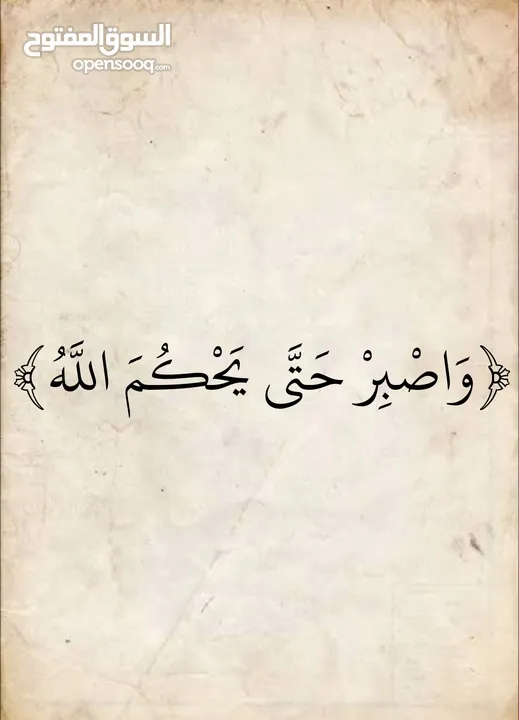 السوق المفتوح
opensooq.com
﴿وَاصْبِرْ حَتَّى يَحْكُمَ اللَّهُ﴾